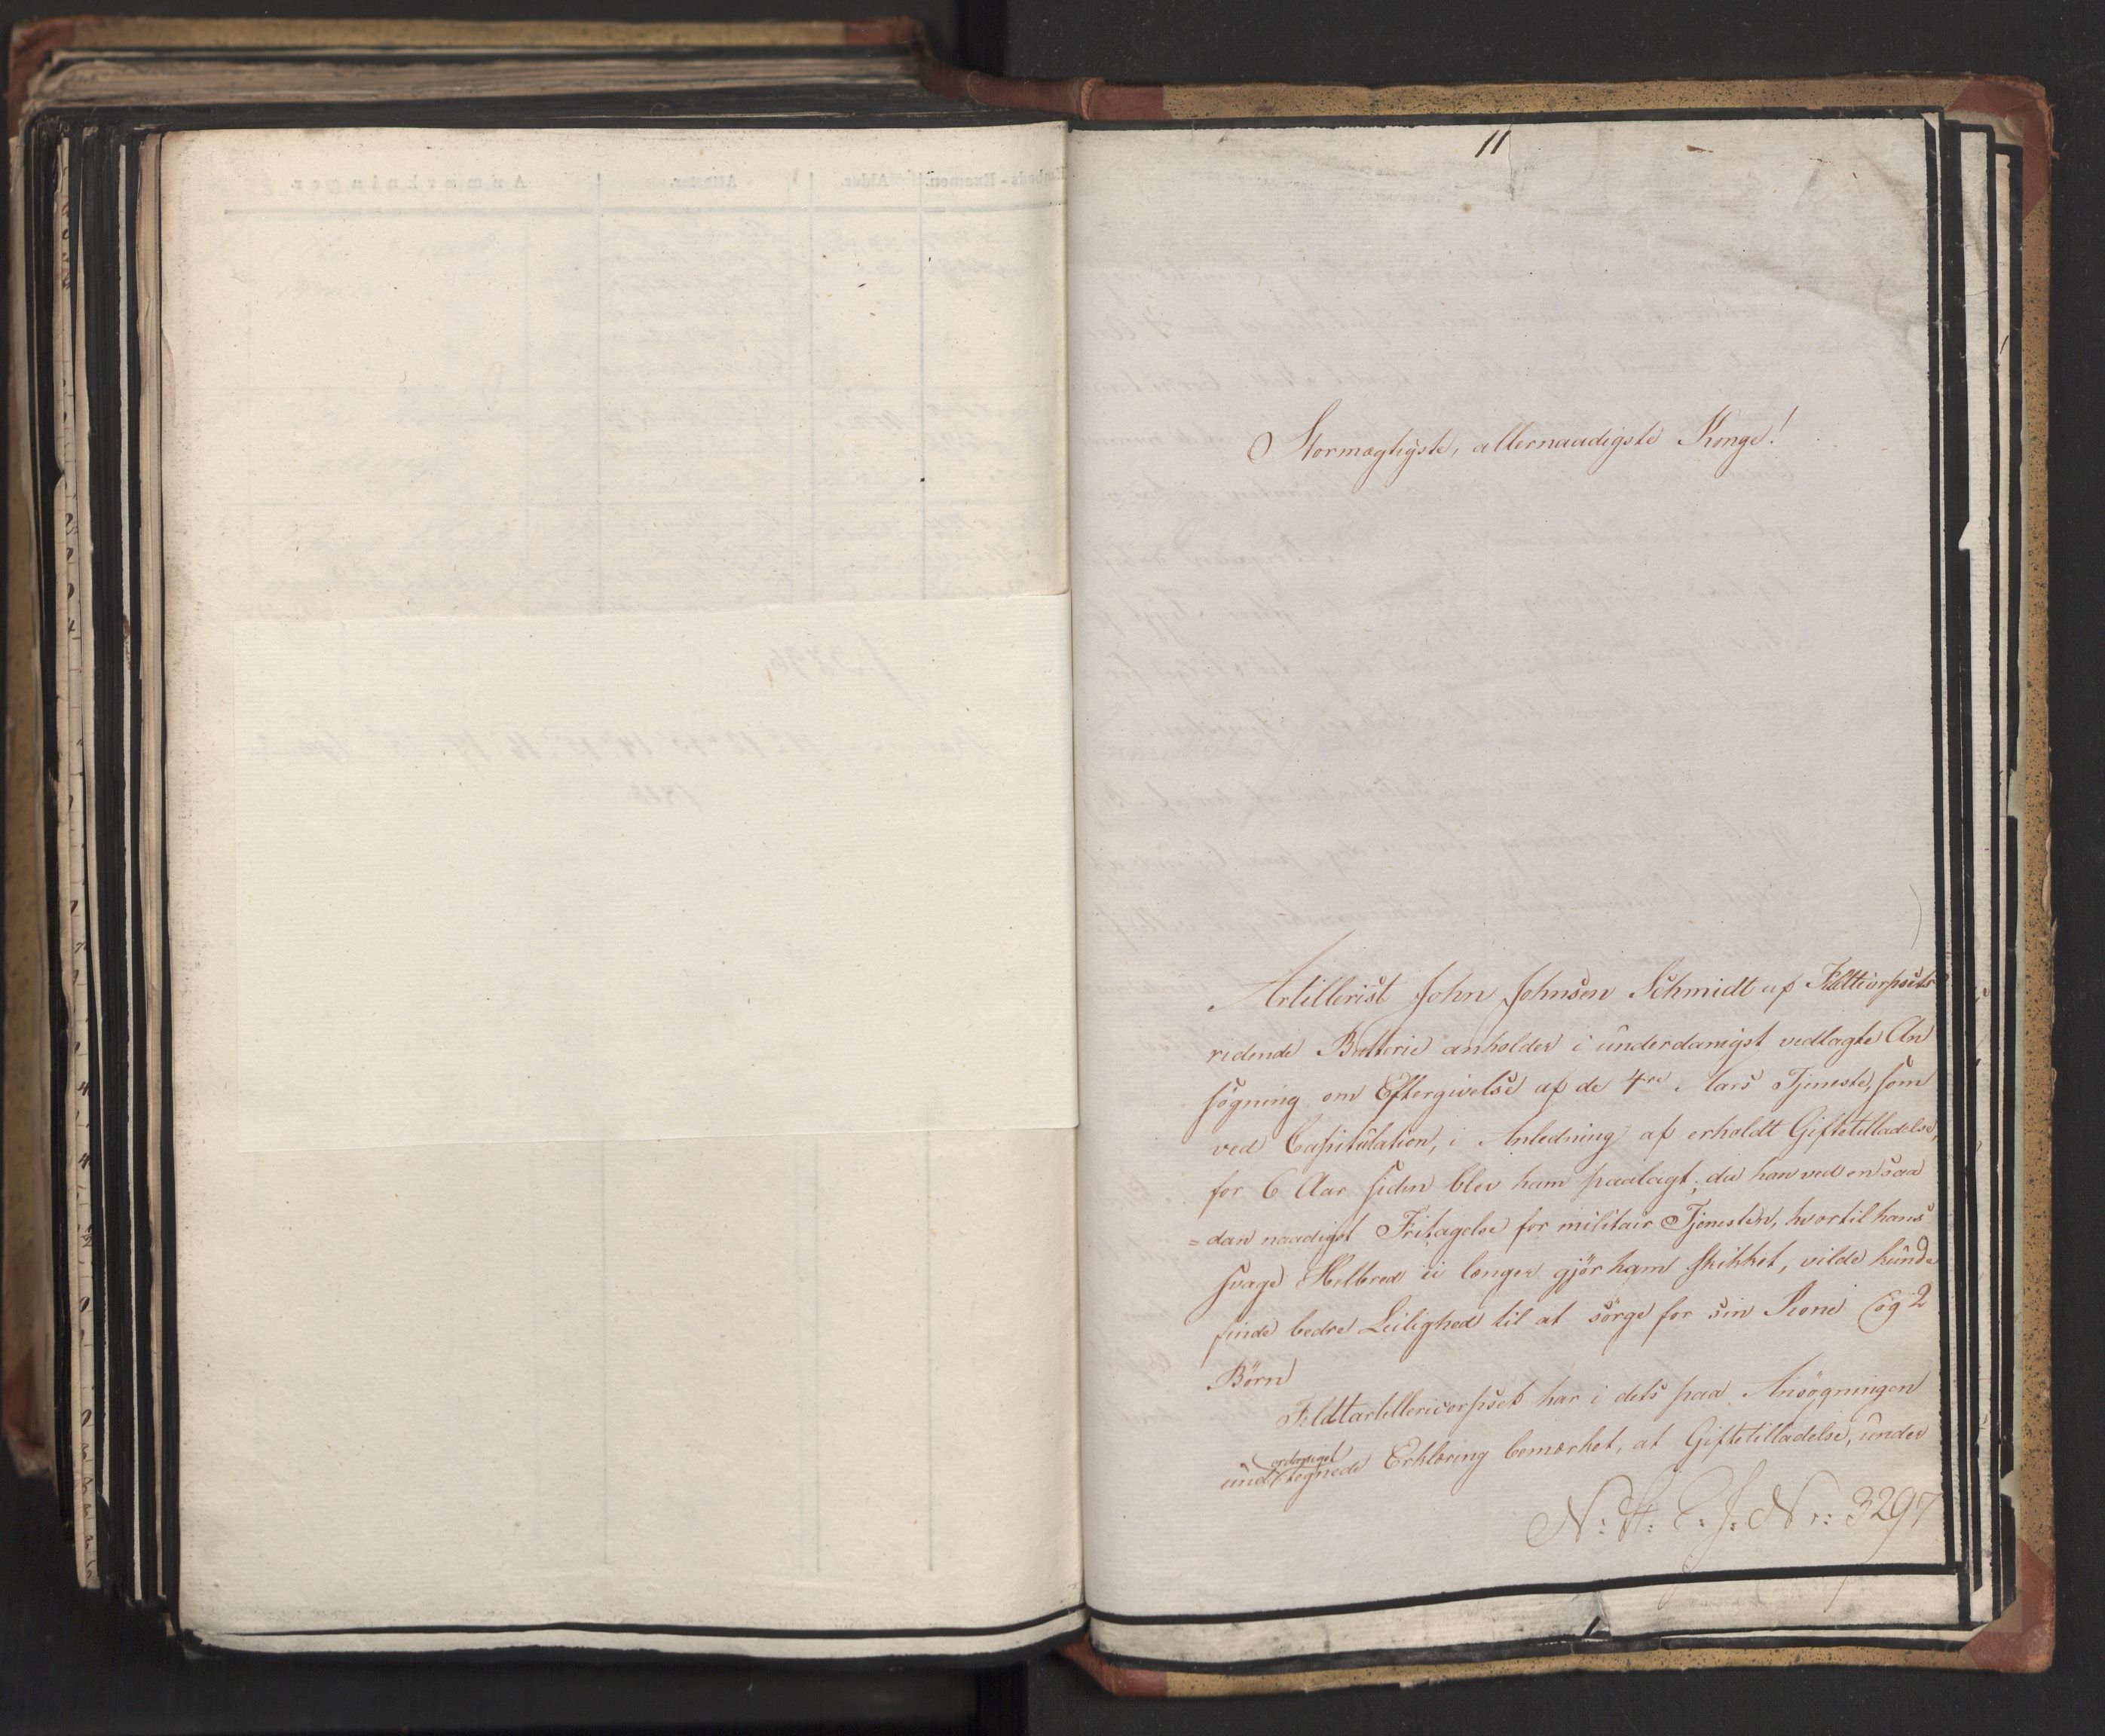 11
Stormægtigste, allernaadigste Konge!
Artillerist John Johnsen Schmidt af Feldtcorpsets
ridende Batterie anholder i underdanigst vedlagte An
søgning om Eftergivelse af de 4re Aars Tjeneste, som
ved Capitulation, i Anledning af erholdt Giftetilladelse,
for 6 Aar siden blev ham paalagt; da han ved en saa
=dan naadigst Fritagelse for militair Tjenesten, hvortil hans
svage Helbred ei længer gjør ham skikket, vilde kunde
finde bedre Leilighed til at sørge for sin Kone og 2
Børn
Feldtartilleriecorpset har i dets paa Ansøgningen
underdanigst tegnede Erklæring bemærket, at Giftetilladelse, under
N: A: C: J: Nr: 3297